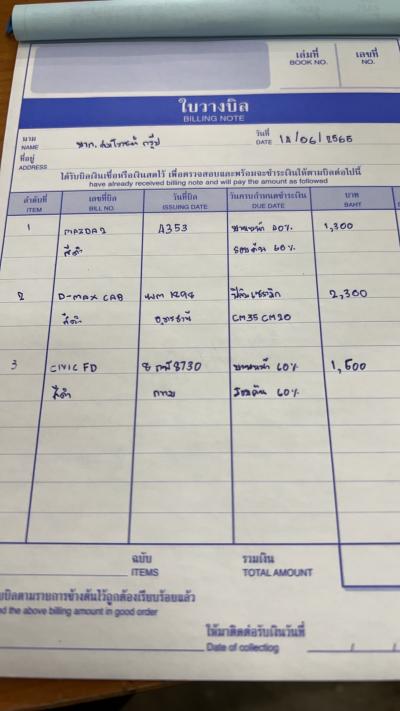 เล่มที่ เลขที่
BOOK NO. NO.
ใบวางบิล
BILLING NOTE
นาม วันที่
NAME DATE 12/06/2565
ที่อยู่
ADDRESS
ได้รับบิลเงินเชื่อหรือเงินสดไว้ เพื่อตรวจสอบและพร้อมจะชำระเงินให้ตามบิลต่อไปนี้
have already received billing note and will pay the amount as followed
ลำดับที่ เลขที่บิล วันที่บิล วันครบกำหนดชำระเงิน บาท
ITEM BILL NO. ISSUING DATE DUE DATE BAHT
1 MAZDA2 A353 บานหน้า 40% 1,300
สีดำ รอบคัน 60%
2 D-MAX CAB ฟิล์มเซรามิก 2,300
สีดำ CM35 CM20
3 CIVIC FD 8730 บานหน้า 60% 1,500
สีดำ กทม รอบคัน 60%
ฉบับ รวมเงิน
ITEMS TOTAL AMOUNT
บิลตามรายการข้างต้นไว้ถูกต้องเรียบร้อยแล้ว
the above billing amount in good order
ให้มาติดต่อรับเงินวันที่
Date of collecting / /